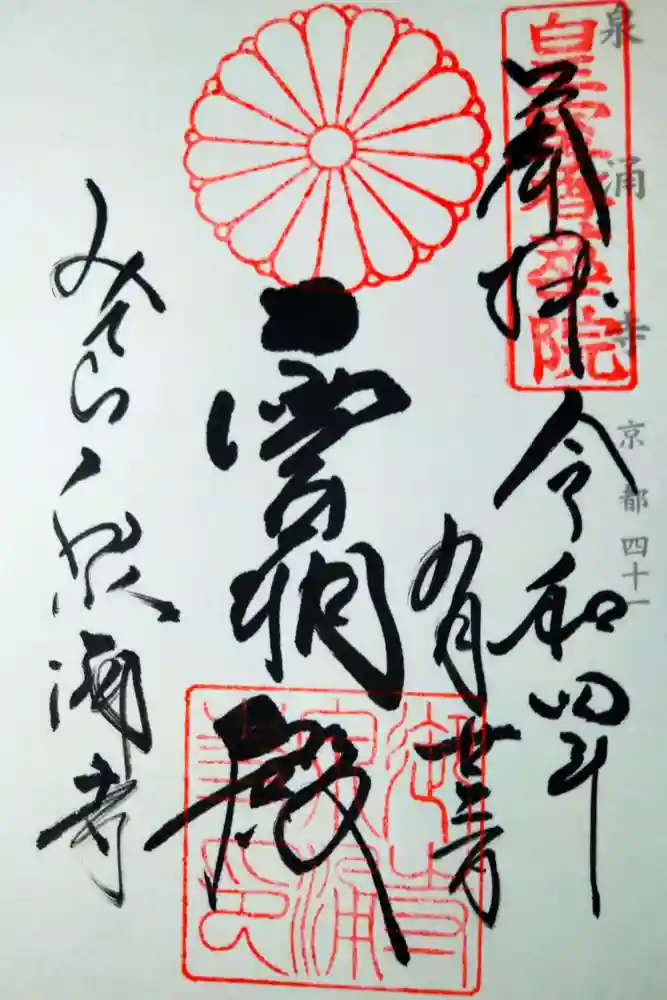 泉涌寺 京都四十一
皇室香華院
奉拝 令和四年
九月廿二日
霊明殿
みてら 泉涌寺